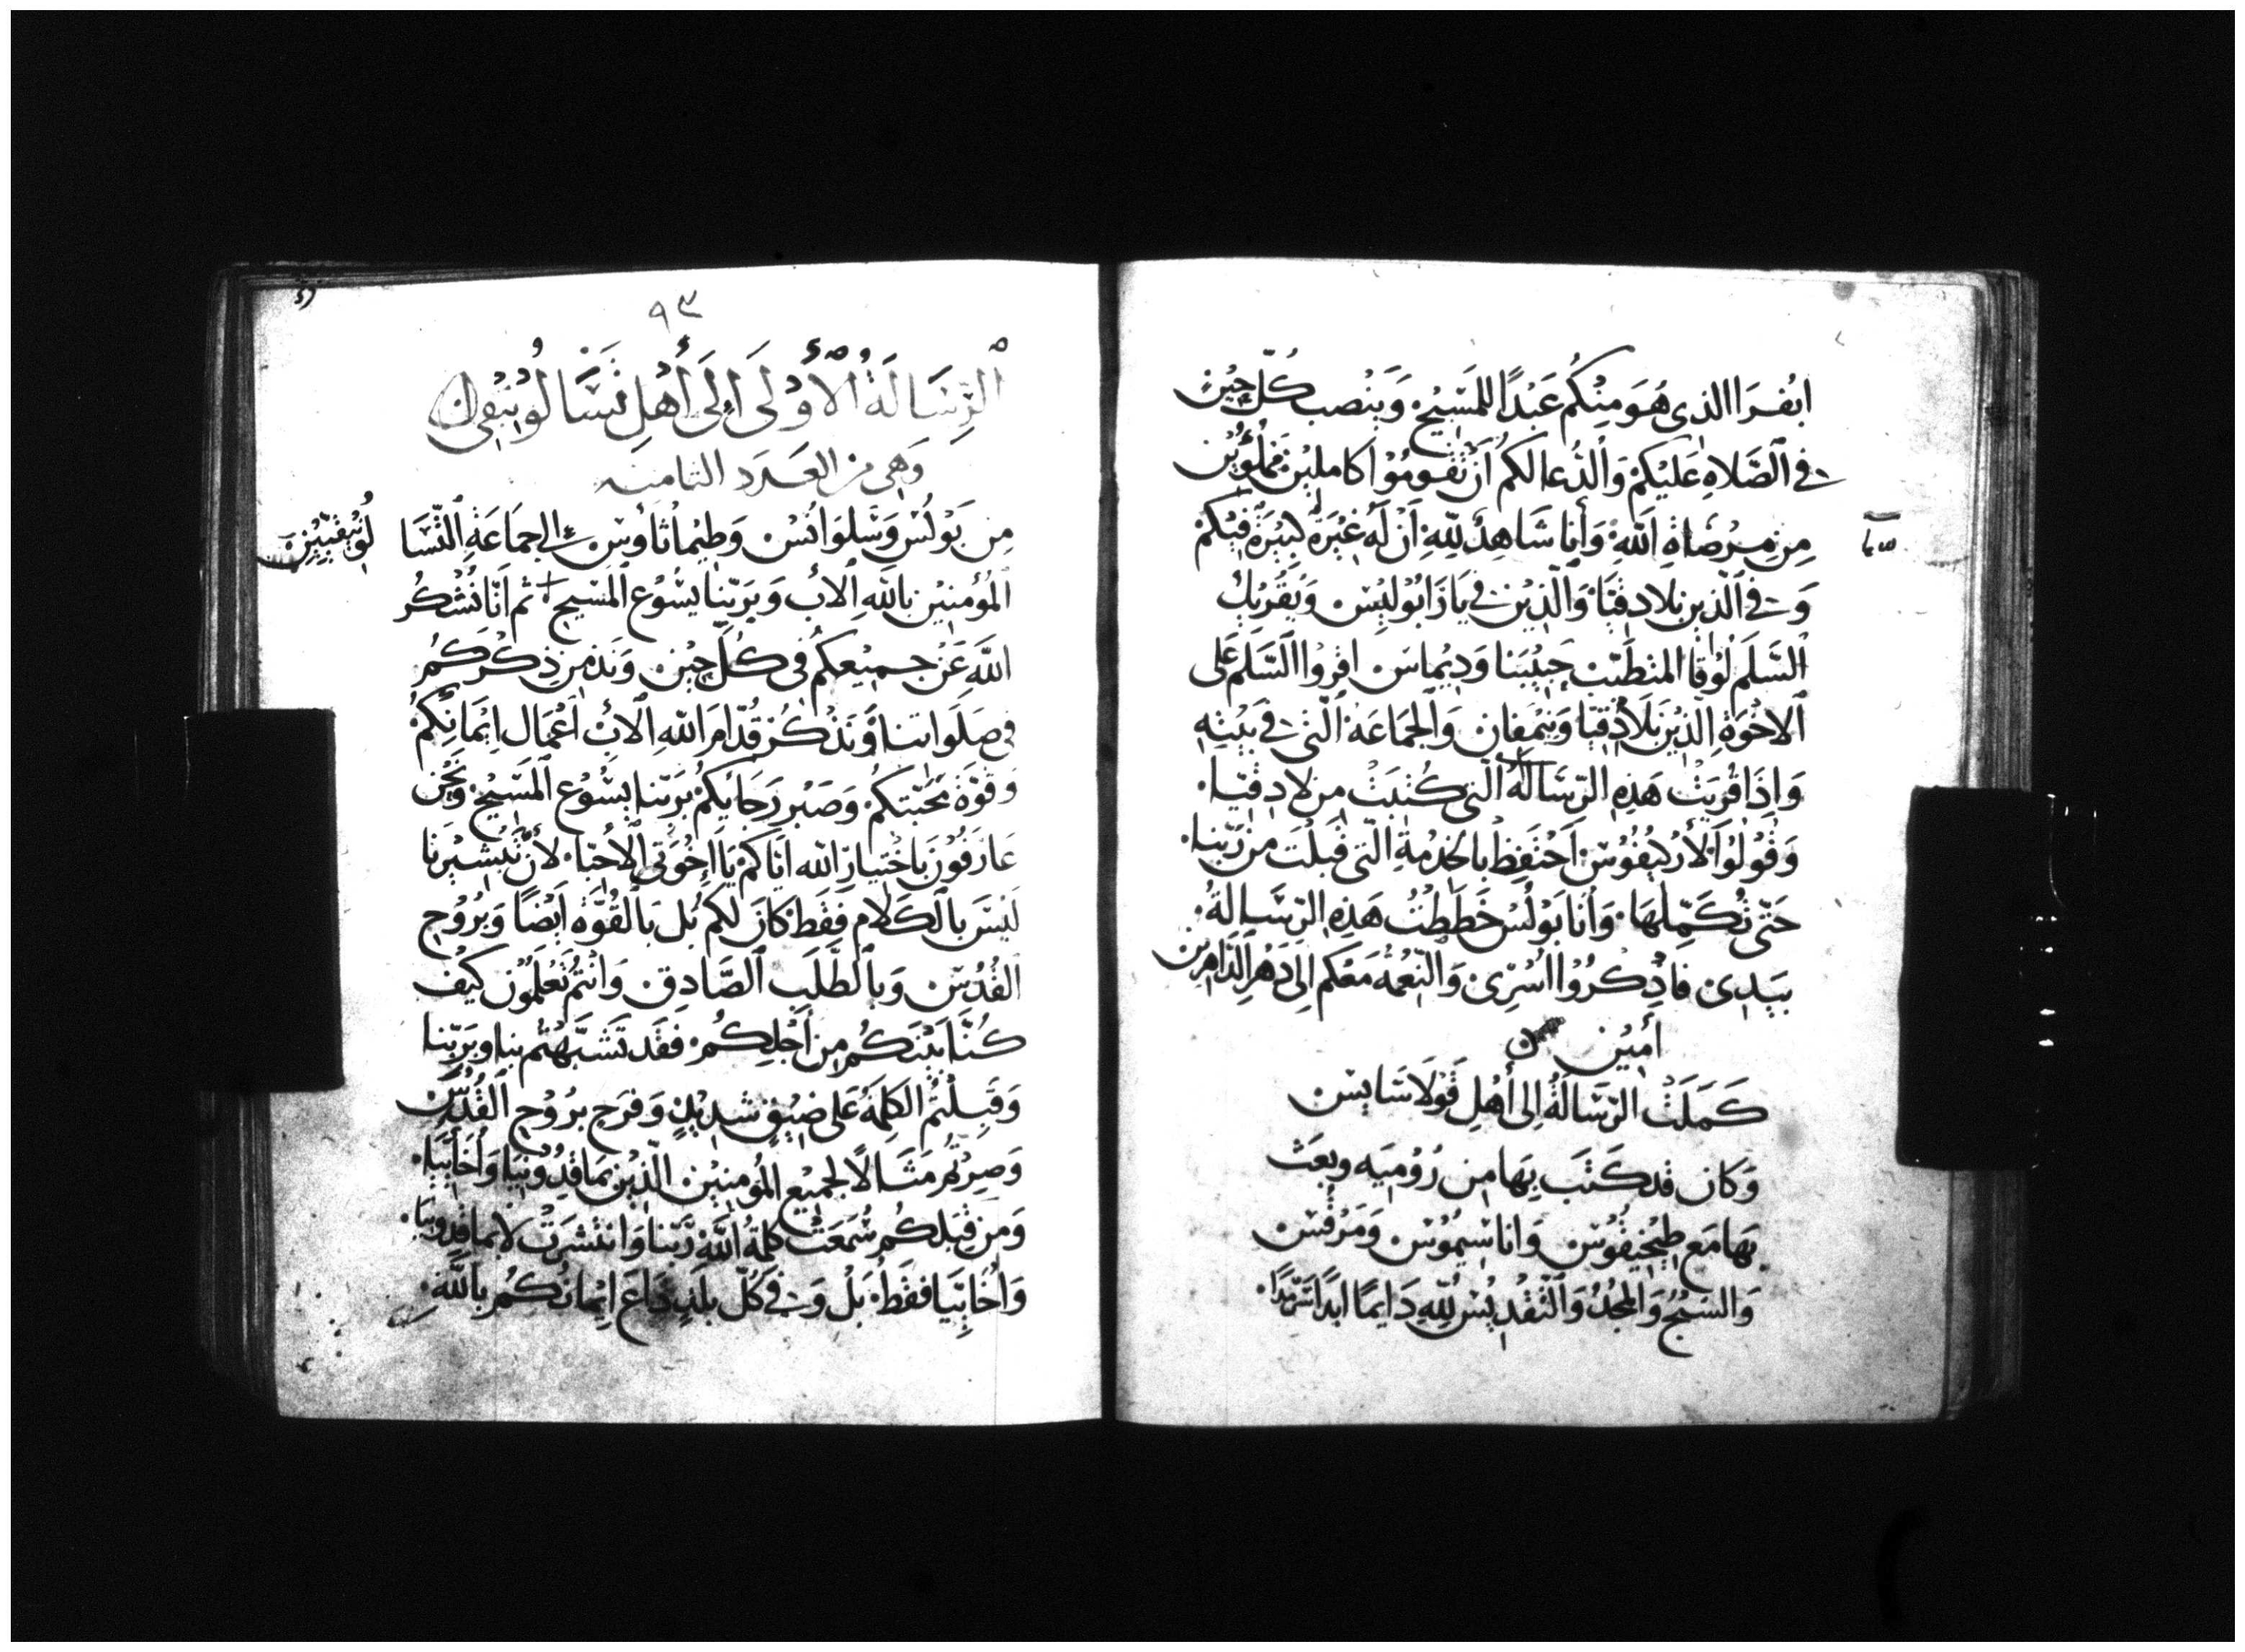 ابفرا الذى هُوَ مِنْكُم عَبْدًا للمَسِيْح وَيَنْصب كُلّ حِيْنٍ
فى الصَّلاهِ عَلَيْكمْ وَالدُّعا لكم أنْ تقومُوْا كاملِيْن مَمْلُوِّيْن
مِن مِرْضاةِ اللهِ وَأنا شَاهِدٌ لِلّهِ اَنّ لَهُ غيْرَةً كبِيْرَةً فيْكمْ
وَفى الّذين بلادقيَا وَالّذِيْن فى يَاذَابُوْلِيْس وَيُقرِيكُ
السَّلَم لوُقا المتطَبّب حَبِيْبنا وَدِيْماسَ اقروُا السَّلَم عَلى
الاخْوَةِ الّذِيْن بَلاَذِقيَا وَنِمْفان وَالجمَاعَة الّتى فى بَيْتِهِ
وَاِذَا قُرِيَتْ هَذِهِ الرِّسَالَةُ الّتى كُتِبَتْ مِن لادِقيّا
وَقُوْلُوْا لأرْكِيفُوْس اَحْتفِظ بالخدْمةِ الّتى قَبلْتَ من رَبّنا
حَتّى تُكَمِّلهَا وَأنا بَوْلُسْ خَطَطْتُ هَذِهِ الرّسَالةُ
بيَدِى فاذْكُرُوْا اُسْرِى وَالنّعْمةُ مَعَكم اِلى دَهْر الدّاهِرين
أمِيْن
كَمَلَتْ الرّسَالَةُ اِلى أهْلِ قَوْلاَسَايسْ
وَكان قد كَتَب بهَا مِن رُوْمِيَه وبعَث
بهَا مَع طِيْخِيْقُوْس وَاناسِيْمُوْس وَمَرْقُسْ
وَالسبْحُ وَالمجْدُ وَالتّقْدِيْسُ للّهِ دَايمًا ابدًا سَرْمدًا
٩٣
الرِّسَالَةُ الأُوْلَى إِلَى أَهْلِ تَسَّالُوْنِيْقِى
وَهى من العَدَد الثامنه
مِن بَوْلُسْ وَسَّلوَانُسْ وَطِيْماثاوُسْ الى جمَاعَةِ التّسَّا لُوْنِيْقيّيْن
المُؤْمنِيْن بالله الأبْ وَبرَبّنا يسُّوْع المَسِيح ثم اَنّا نُشْكُر
اللهَ عَنْ جَمِيْعِكُم فى كُلّ حِيْن وَنَذْمِن ذِكْرَكُمْ
فى صَلَوَاتنا وَنَذْكُرْ قُدّامَ اللّهِ الأبْ اَعْمَال اِيْمَانِكُمْ
وَقوّة مَحَبّتكمْ وَصَبْر رَجَايكُمْ برَبّنا يسُّوْع المَسِيْح وَنَحْن
عَارَفُوْن باخْتيار الله ايّاكمْ يَا اِخْوَتى الأحِبّا لأنَّ تَبْشيْرَنا
لَيْسَ بالكَلام فقَط كَانَ لكمْ بَل بالقُوّة اَيْضًا وَبرُوْح
القُدُسْ وَبالطَّلَب الصَّادِق وَانْتُمْ تَعْلَمُوْن كيْف
كُنَّا بَيْنَكُمْ مِن اَجْلِكُمْ فقَد تشَبّهْتُمْ بنا وبرَبّنا
وَقَبِلْتُم الكلمَةُ عَلى ضِيْقٍ شدِيْدٍ وَفرَح برُوْح القُدُسْ
وَصِرْتُم مَثَالًا لجَمِيْع المُؤمِنِيْن الّذِيْن بمَاقِدُوْنِيَا وَأخَايَّا
وَمن قبَلكُم سُمِعَتْ كلمَةُ اللّهِ رَبّنا وَانتْشَرَتْ لا بماقدُونيَا
وَأُخَايَّيَا فقَط بَلْ وَفى كُلّ بلَدٍ ذَاعَ اِيْمانُكُمْ باللّهِ